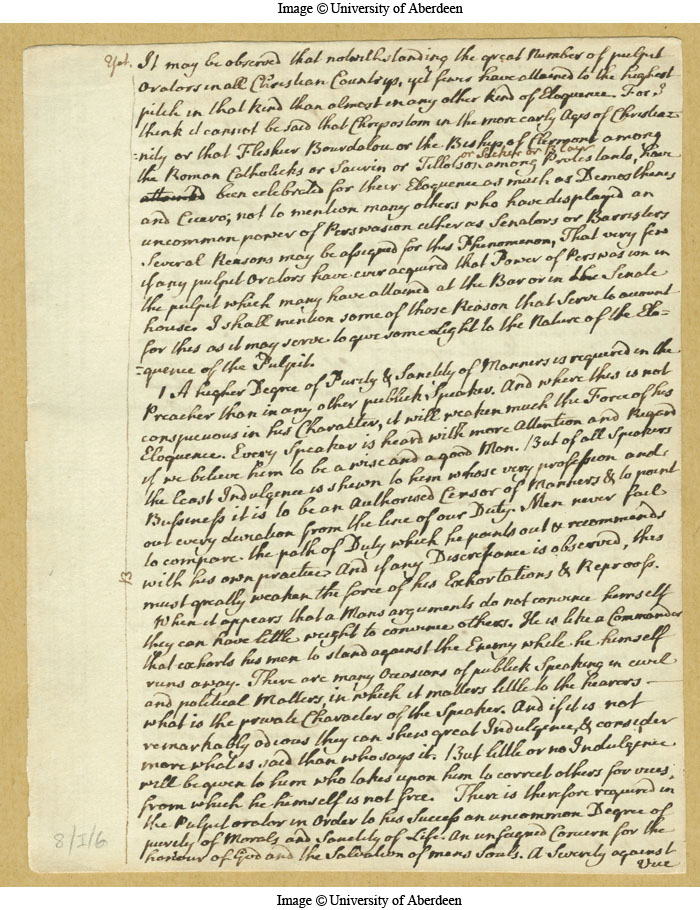 Image © University of Aberdeen
It may be observed that notwithstanding the great Number of pulpit
Orators in all Christian Countrys, yet fewer have attained to the highest
pitch in that kind than almost in any other kind of Eloquence. For I
think it cannot be said that Chrysostom in the more early Ages of Christia-
-nity or that Fleshier Bourdalou or the Bishop of Clermont among
or Secker or Blair
the Roman Catholicks or Saurin or Tillotson among Protestants, have
attained been celebrated for their Eloquence as much as Demosthenes
and Cicero; not to mention many others who have displayed an
uncommon power of Perswasion either as Senators or Barristers
Several Reasons may be assigned for this Phenomenon, That very few
if any pulpit Orators have ever acquired that Power of Perswasion in
the pulpit which many have attained at the Bar or in the Senate
house. I shall mention some of those Reason that Serve to account
for this as it may serve to give some Light to the Nature of the Elo=
=quence of the Pulpit.
1 A higher Degree of Purity & Sanctity of Manners is required in the
Preacher than in any other publick Speaker. And where this is not
conspicuous in his Character, it will weaken much the Force of his
Eloquence. Every Speaker is heard with more Attention and Regard
if we believe him to be a wise and a good Man. But of all Speakers
the least Indulgence is shewn to him whose very profession and
Bussiness it is to be an Authorised Censor of Manners & to point
out every deviation from the line of our Duty. Men never fail
to compare the path of Duty which he points out & recommends
with his own practice And if any Discrepance is observed, this
must greatly weaken the force of his Exhortations & Reproofs.
13
When it appears that a Mans arguments do not convince himself
they can have little weight to convince others. He is like a Commander
that exhorts his men to stand against the Enemy while he himself
runs away. There are many Occasions of publick Speaking in civil
and political Matters, in which it matters little to the hearers
what is the private Character of the Speaker. And if it is not
remarkably odious they can shew great Indulgence, & consider
more what is said than who says it. But little or no Indulgence
will be given to him who takes upon him to correct others for vices,
from which he himself is not free. There is therefore required in
the Pulpit orator in Order to his Success an uncommon Degree of
purity of Morals and Sanctity of Life. An unfeigned Concern for the
honour of God and the Salvation of mens Souls. A Severity against
Vice
8/I/6
Image © University of Aberdeen